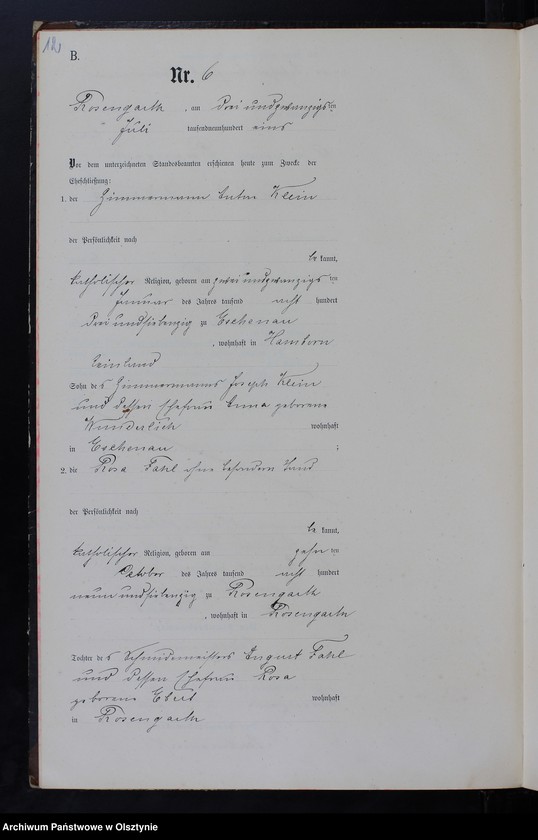 B.
Nr. 6
Rosengarth, am drei und zwanzigsten
Juli tausendneunhundert eins
Vor dem unterzeichneten Standesbeamten erschienen heute zum Zwecke der
Eheschließung:
1. der Zimmermann Anton Klein
der Persönlichkeit nach
be kannt,
katholischer Religion, geboren am zwei und zwanzigsten
Januar des Jahres tausend acht hundert
drei und siebenzig zu Eschenau
, wohnhaft in Hamborn
Sohn des Zimmermanns Joseph Klein
und dessen Ehefrau Anna geborene
Wunderlich wohnhaft
in Eschenau ;
2. die Rosa Fahl ohne besondern Stand
der Persönlichkeit nach
be kannt,
katholischer Religion, geboren am zehn ten
Oktober des Jahres tausend acht hundert
neun und siebenzig zu Rosengarth
, wohnhaft in Rosengarth
Tochter des Schmiedemeisters August Fahl
und dessen Ehefrau Rosa
geborene Ebert wohnhaft
in Rosengarth
Archiwum Państwowe w Olsztynie